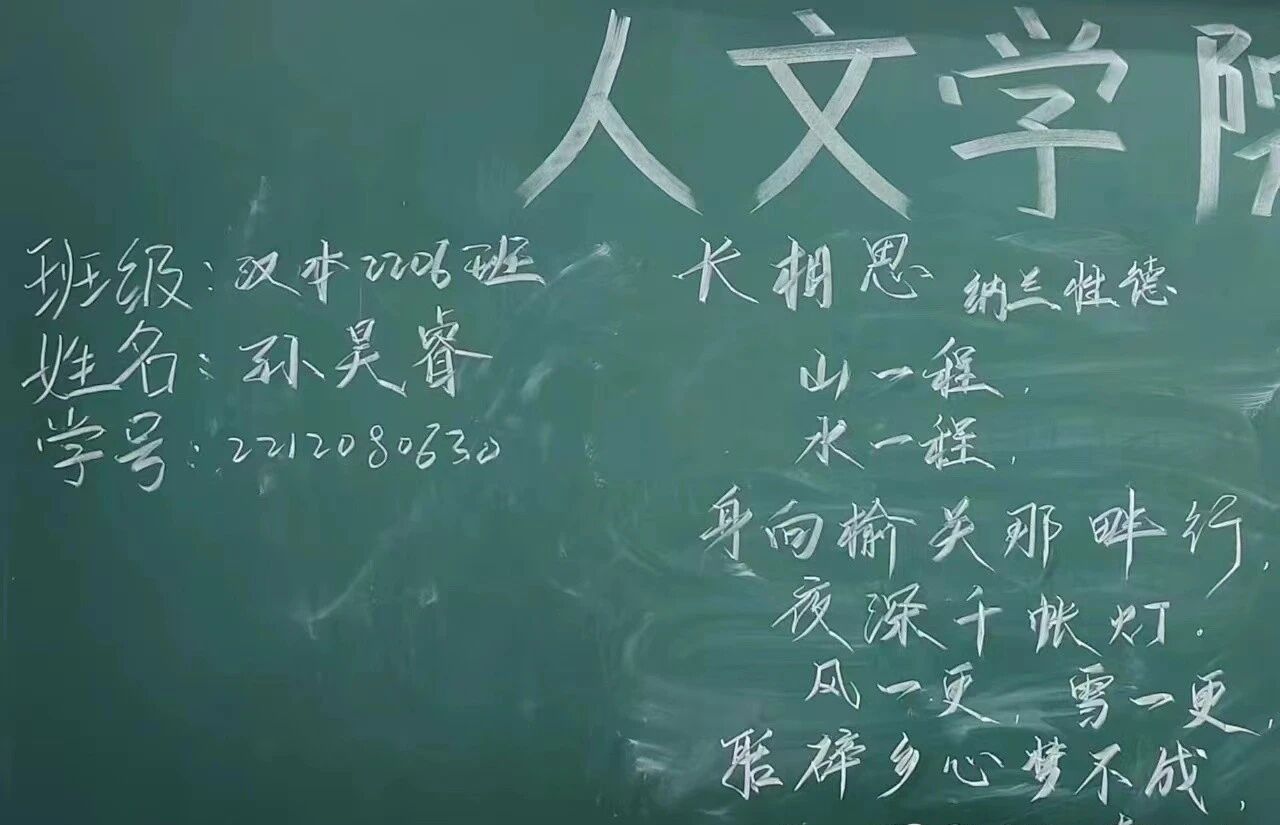 人文学院
班级：汉本2206班
姓名：孙昊睿
学号：2212080630
长相思 纳兰性德
山一程，
水一程，
身向榆关那畔行，
夜深千帐灯．
风一更，雪一更，
聒碎乡心梦不成，